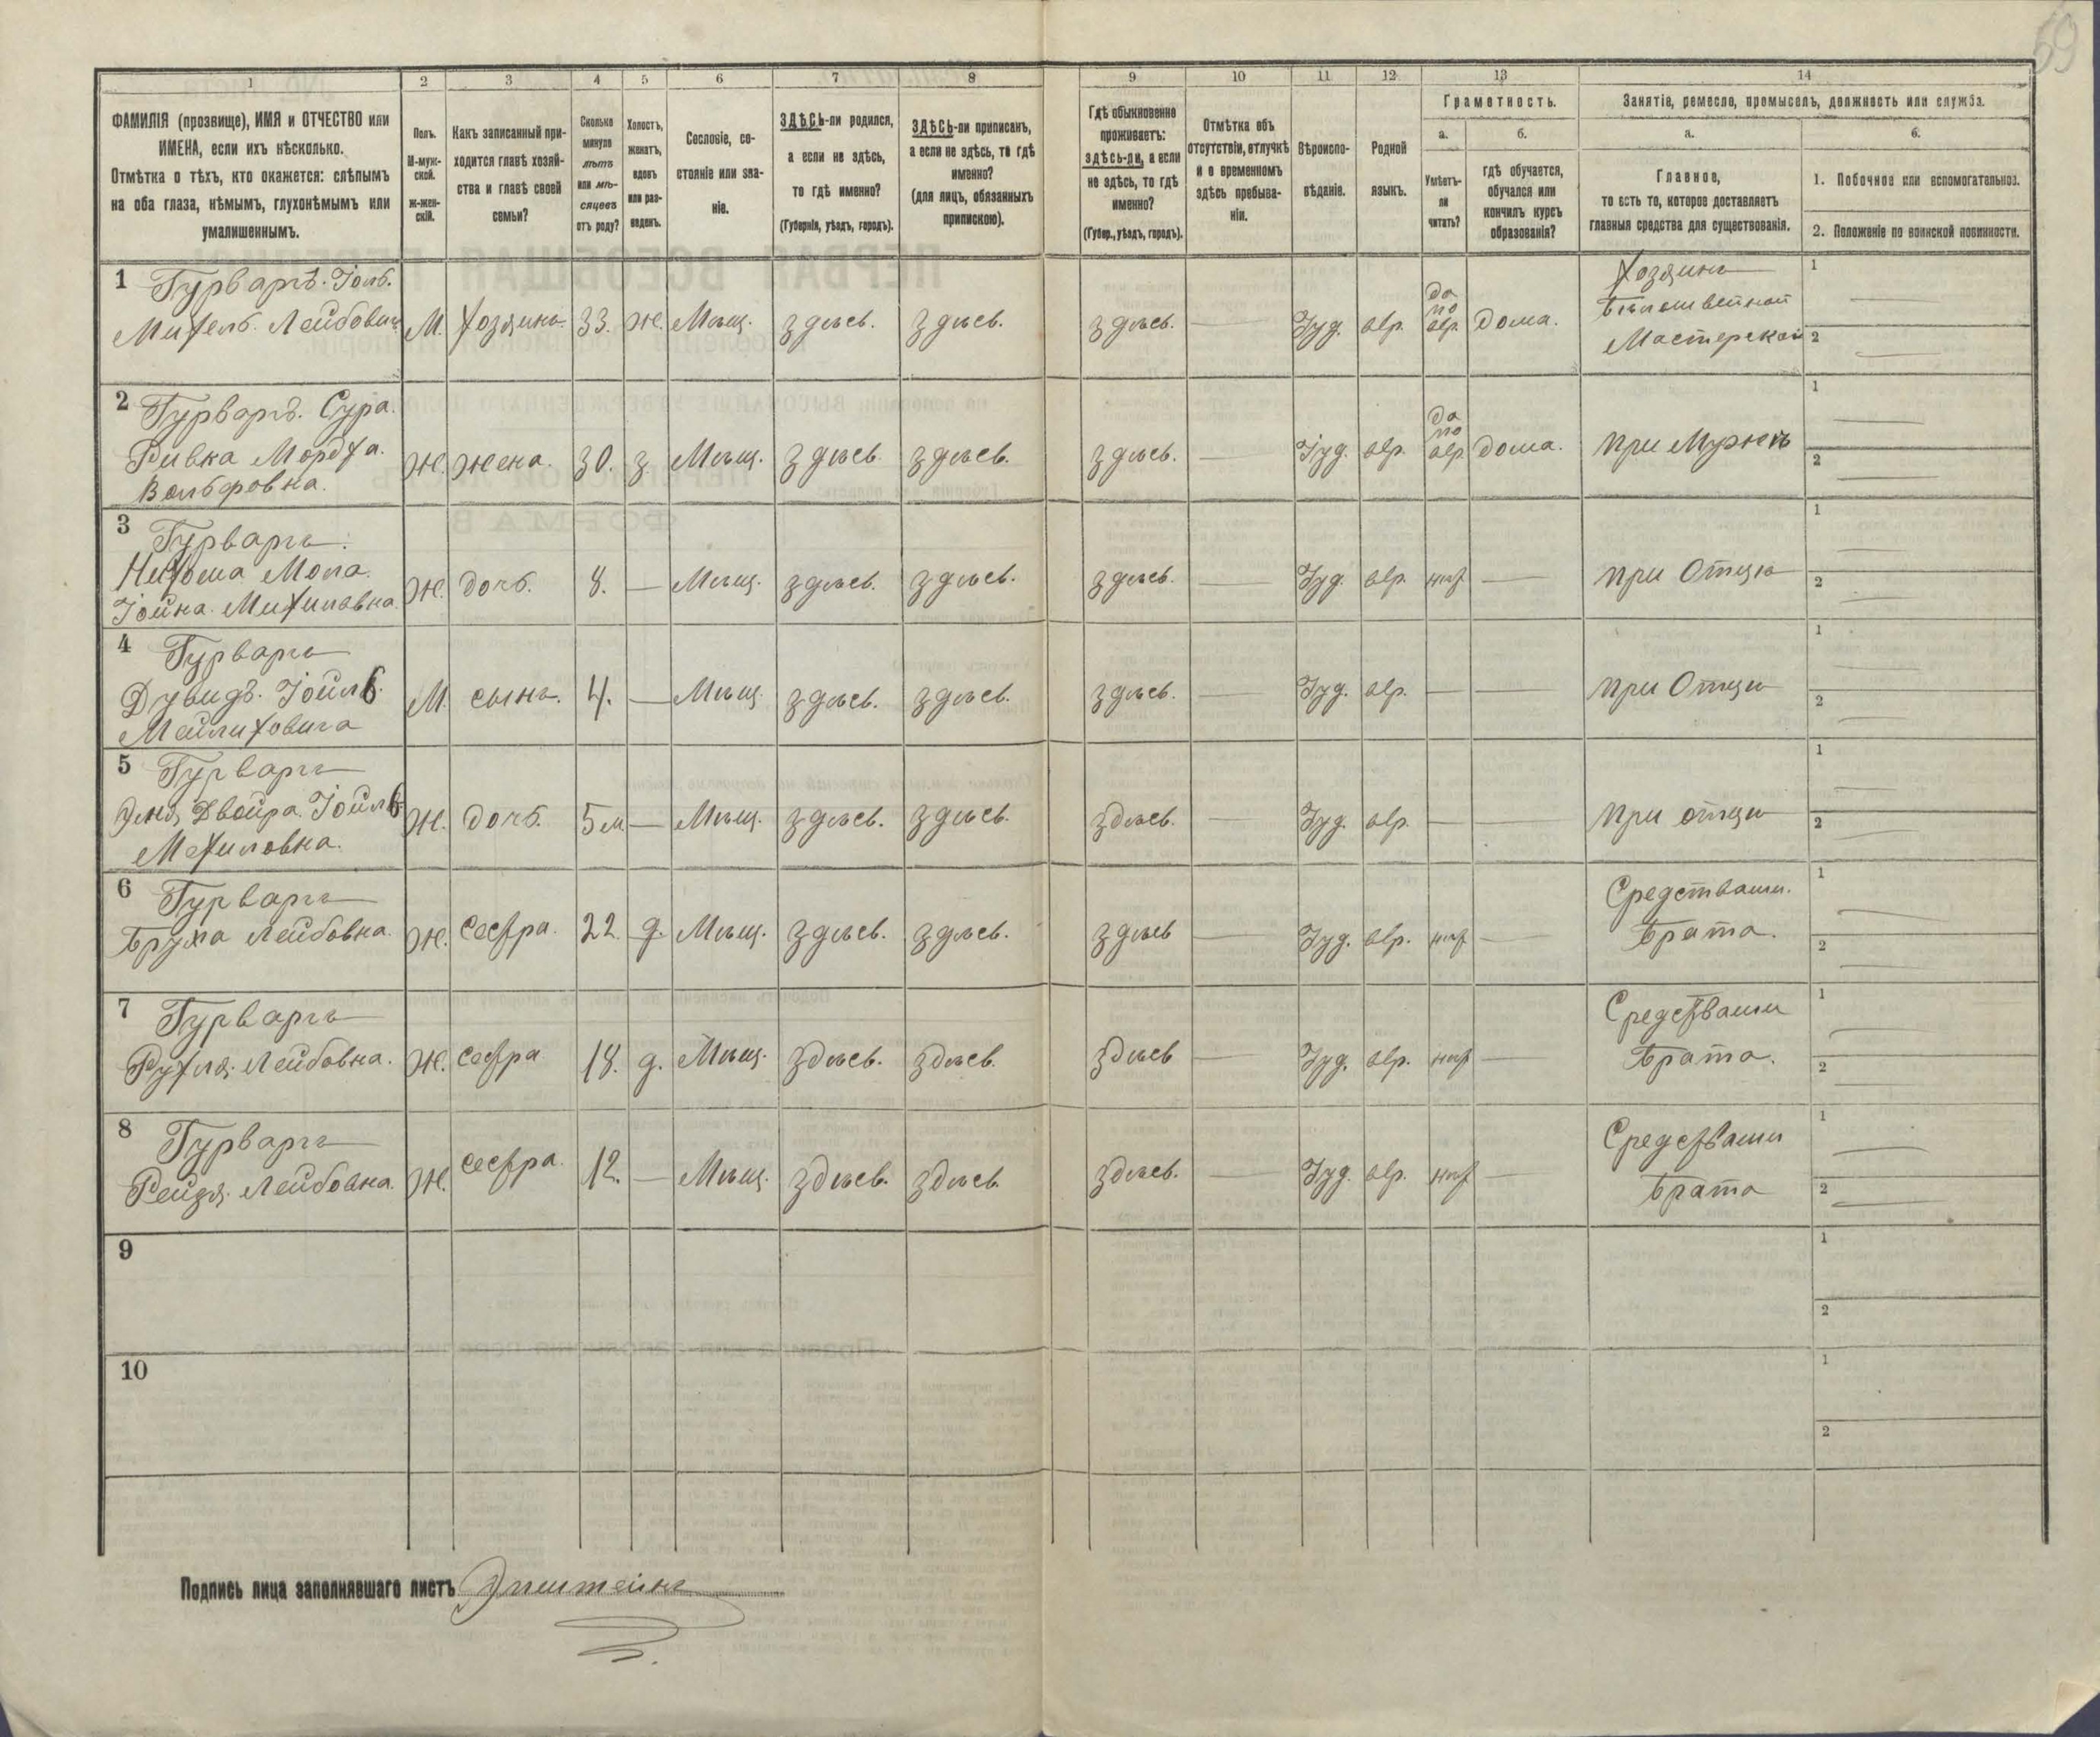 59
1 2 3 4 5 6 7 8 9 10 11 12 13 14
ФАМИЛІЯ (прозвище), ИМЯ и ОТЧЕСТВО или
ИМЕНА, если ихъ нѣсколько.
Отмѣтка о тѣхъ, кто окажется: слѣпымъ
на оба глаза, нѣмымъ, глухонѣмымъ или
умалишеннымъ.
Полъ.
М-муж-
ской.
Ж-жен-
скій.
Какъ записанный при-
ходится главѣ хозяй-
ства и главѣ своей
семьи?
Сколько
минуло
лѣтъ
или мѣ-
сяцевъ
отъ роду?
Холостъ,
женатъ,
вдовъ
или раз-
веденъ.
Сословіе, со-
стояніе или зва-
ніе.
ЗДѢСЬ-ли родился,
а если не здѣсь,
то гдѣ именно?
(Губернія, уѣздъ, городъ).
ЗДѢСЬ-ли приписанъ,
а если не здѣсь, то гдѣ
именно?
(для лицъ, обязанныхъ
припискою).
Гдѣ обыкновенно
проживаетъ:
здѣсь-ли, а если
не здѣсь, то гдѣ
именно?
(Губер., уѣздъ, городъ).
Отмѣтка объ
отсутствіи, отлучкѣ
и о временномъ
здѣсь пребыва-
ніи.
Вѣроиспо-
вѣданіе.
Родной
языкъ.
Грамотность.
а.
Умѣетъ-
ли
читать?
б.
гдѣ обучается,
обучался или
кончилъ курсъ
образованія?
Занятіе, ремесло, промыселъ, должность или служба.
а.
Главное,
то есть то, которое доставляетъ
главныя средства для существованія.
б.
1. Побочное или вспомогательное.
2. Положеніе по воинской повинности.
1 Гурварг. Іоль.
Михель. Лейбович М. Хозяинъ. 33. Ж. Мѣщ. здѣсь. здѣсь. здѣсь. — Іуд. евр. да по евр. дома. Хозяинъ
Бѣлошвейной
Мастерской
1 —
2 —
2 Гурваргъ. Сура.
Ривка Мордха.
Вольфовна. Ж. жена. 30. з Мѣщ. здѣсь здѣсь. здѣсь. — Іуд. евр. да по евр. дома. при Мужѣ
1 —
2 —
3 Гурваргъ.
Нихома Мола.
Іойна. Михиловна. Ж. дочь. 8. — Мѣщ. здѣсь. здѣсь. здѣсь. — Іуд. евр. нѣт — при Отцѣ
1 —
2 —
4 Гурваргъ
Дувидъ. Іойль.
Мейлиховича М. сынъ. 4. — Мѣщ. здѣсь. здѣсь. здѣсь. — Іуд. евр. — — при Отцѣ
1 —
2 —
5 Гурваргъ
Двойра. Іойль
Мехиловна. Ж. дочь. 5 м — Мѣщ. здѣсь. здѣсь. здѣсь. — Іуд. евр. — — при отцѣ
1 —
2 —
6 Гурваргъ
Бруха Лейбовна. Ж. сестра. 22 д. Мѣщ. здѣсь. здѣсь. здѣсь — Іуд. евр. нѣт — Средствами.
Брата.
1 —
2 —
7 Гурваргъ
Рухля. Лейбовна. Ж. сестра 18. д. Мѣщ. здѣсь. здѣсь. здѣсь — Іуд. евр. нѣт — Средствами
Брата.
1 —
2 —
8 Гурваргъ
Рейзя. Лейбовна. Ж. сестра. 12. — Мѣщ. здѣсь. здѣсь здѣсь. — Іуд. евр. нѣт — Средствами
Брата
1 —
2 —
9
1
2
10
1
2
Подпись лица заполнявшаго листъ Эпштейнъ